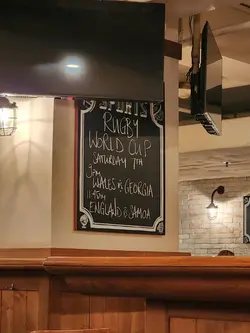 SPORTS
RUGBY
WORLD CUP
SATURDAY 7TH
3pm
WALES vs GEORGIA
11:45pm
ENGLAND vs SAMOA